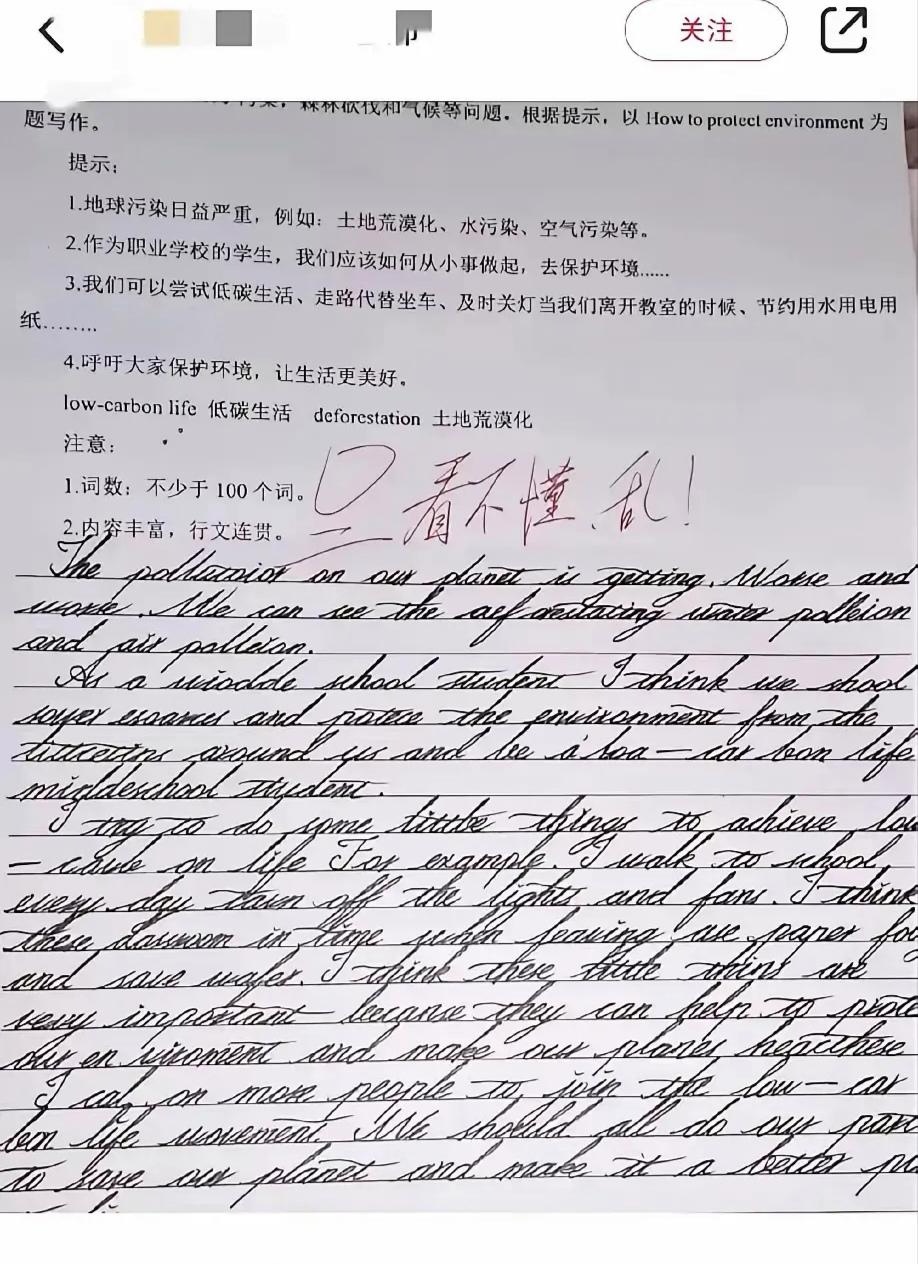 关注
污染，森林砍伐和气候等问题。根据提示，以 How to protect environment 为
题写作。
提示；
1.地球污染日益严重，例如：土地荒漠化、水污染、空气污染等。
2.作为职业学校的学生，我们应该如何从小事做起，去保护环境......
3.我们可以尝试低碳生活、走路代替坐车、及时关灯当我们离开教室的时候、节约用水用电用
纸........
4.呼吁大家保护环境，让生活更美好。
low-carbon life 低碳生活 deforestation 土地荒漠化
注意：
1.词数：不少于 100 个词。
看不懂、乱！
2.内容丰富，行文连贯。
The on our planet is getting. Worse and
worse. We can see the water polleion
and air polleion.
As a school student I think we shool
and the environment from the
around us and be a loa－car bon life
migldeschool student.
I try to do some little things to achieve low
－ on life For example. I walk to school
every day turn off the lights and fans. I think
these in time when leaving use paper
and save water. I think these little thins are
very important because they can help to prote
our en viroment and make our planet
I cal on more people to join the low－car
bon life movement. We should all do our part
to save our planet and make it a better